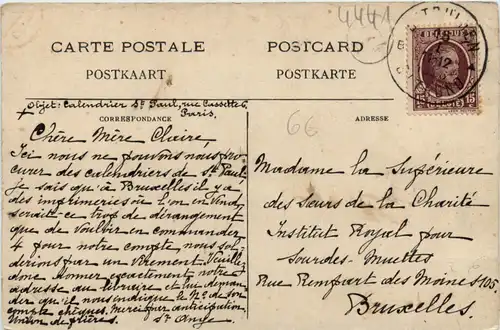 4441
CARTE POSTALE
POSTCARD
POSTKAART
POSTKARTE
Objet: Calendrier St Paul, rue Cassette 6
Paris.
CORRESPONDANCE
ADRESSE
66
Chère Mère Claire,
Ici nous ne pouvons nous pro-
curer des calendriers de St Paul.
Je sais qu'à Bruxelles il y a
des imprimeries où l'on en vend,
serait-ce trop de dérangement
que de vouloir en commander
4 pour notre compte, nous sol-
derions par un virement. Veuillez
donc donner exactement notre
adresse au libraire et lui deman-
der qu'il nous indique le No de son
compte chèques. Merci par anticipation
Union de prières. St Ange
Madame la Supérieure
des sœurs de la Charité
Institut Royal pour
Sourdes-Muettes
Rue Rempart des Moines 105.
Bruxelles.